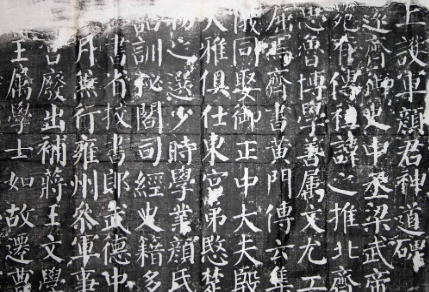 上護軍顔君神道碑
遠齊御史中丞梁武帝
苑有傳祖諱之推北齊
思魯博學善屬文尤工
屈焉齊書黃門傳云集
儀同娶御正中大夫殷
大雅俱仕東宮弟愍楚
物之選少時學業顔氏
詁訓秘閣司經史籍多
書省校書郎武德中
月兼行雍州參軍事
宮廢出補蔣王文學
王屬學士如故遷曹